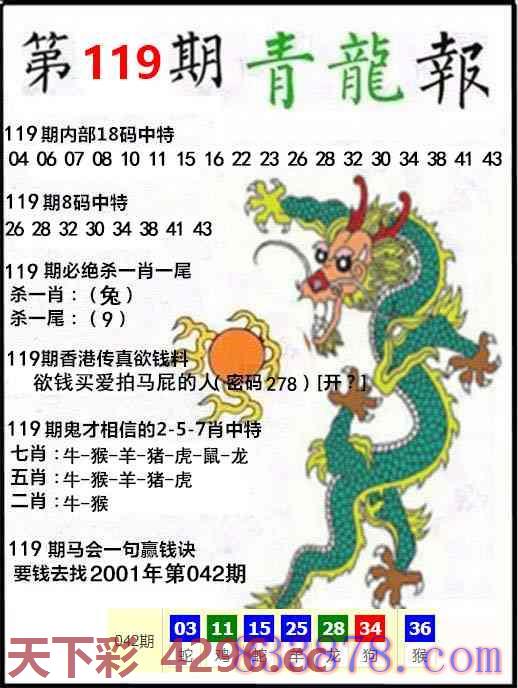 第119期青龍報
119期内部18码中特
04 06 07 08 10 11 15 16 22 23 26 28 32 30 34 38 41 43
119期8码中特
26 28 32 30 34 38 41 43
119期必绝杀一肖一尾
杀一肖：（兔）
杀一尾：（9）
119期香港传真欲钱料
欲钱买爱拍马屁的人(密码278)[开？]
119期鬼才相信的2-5-7肖中特
七肖：牛-猴-羊-猪-虎-鼠-龙
五肖：牛-猴-羊-猪-虎
二肖：牛-猴
119期马会一句赢钱诀
要钱去找2001年第042期
042期 03 11 15 25 28 34 36
蛇 鸡 蛇 羊 龙 狗 猴
天下彩 4296.cc